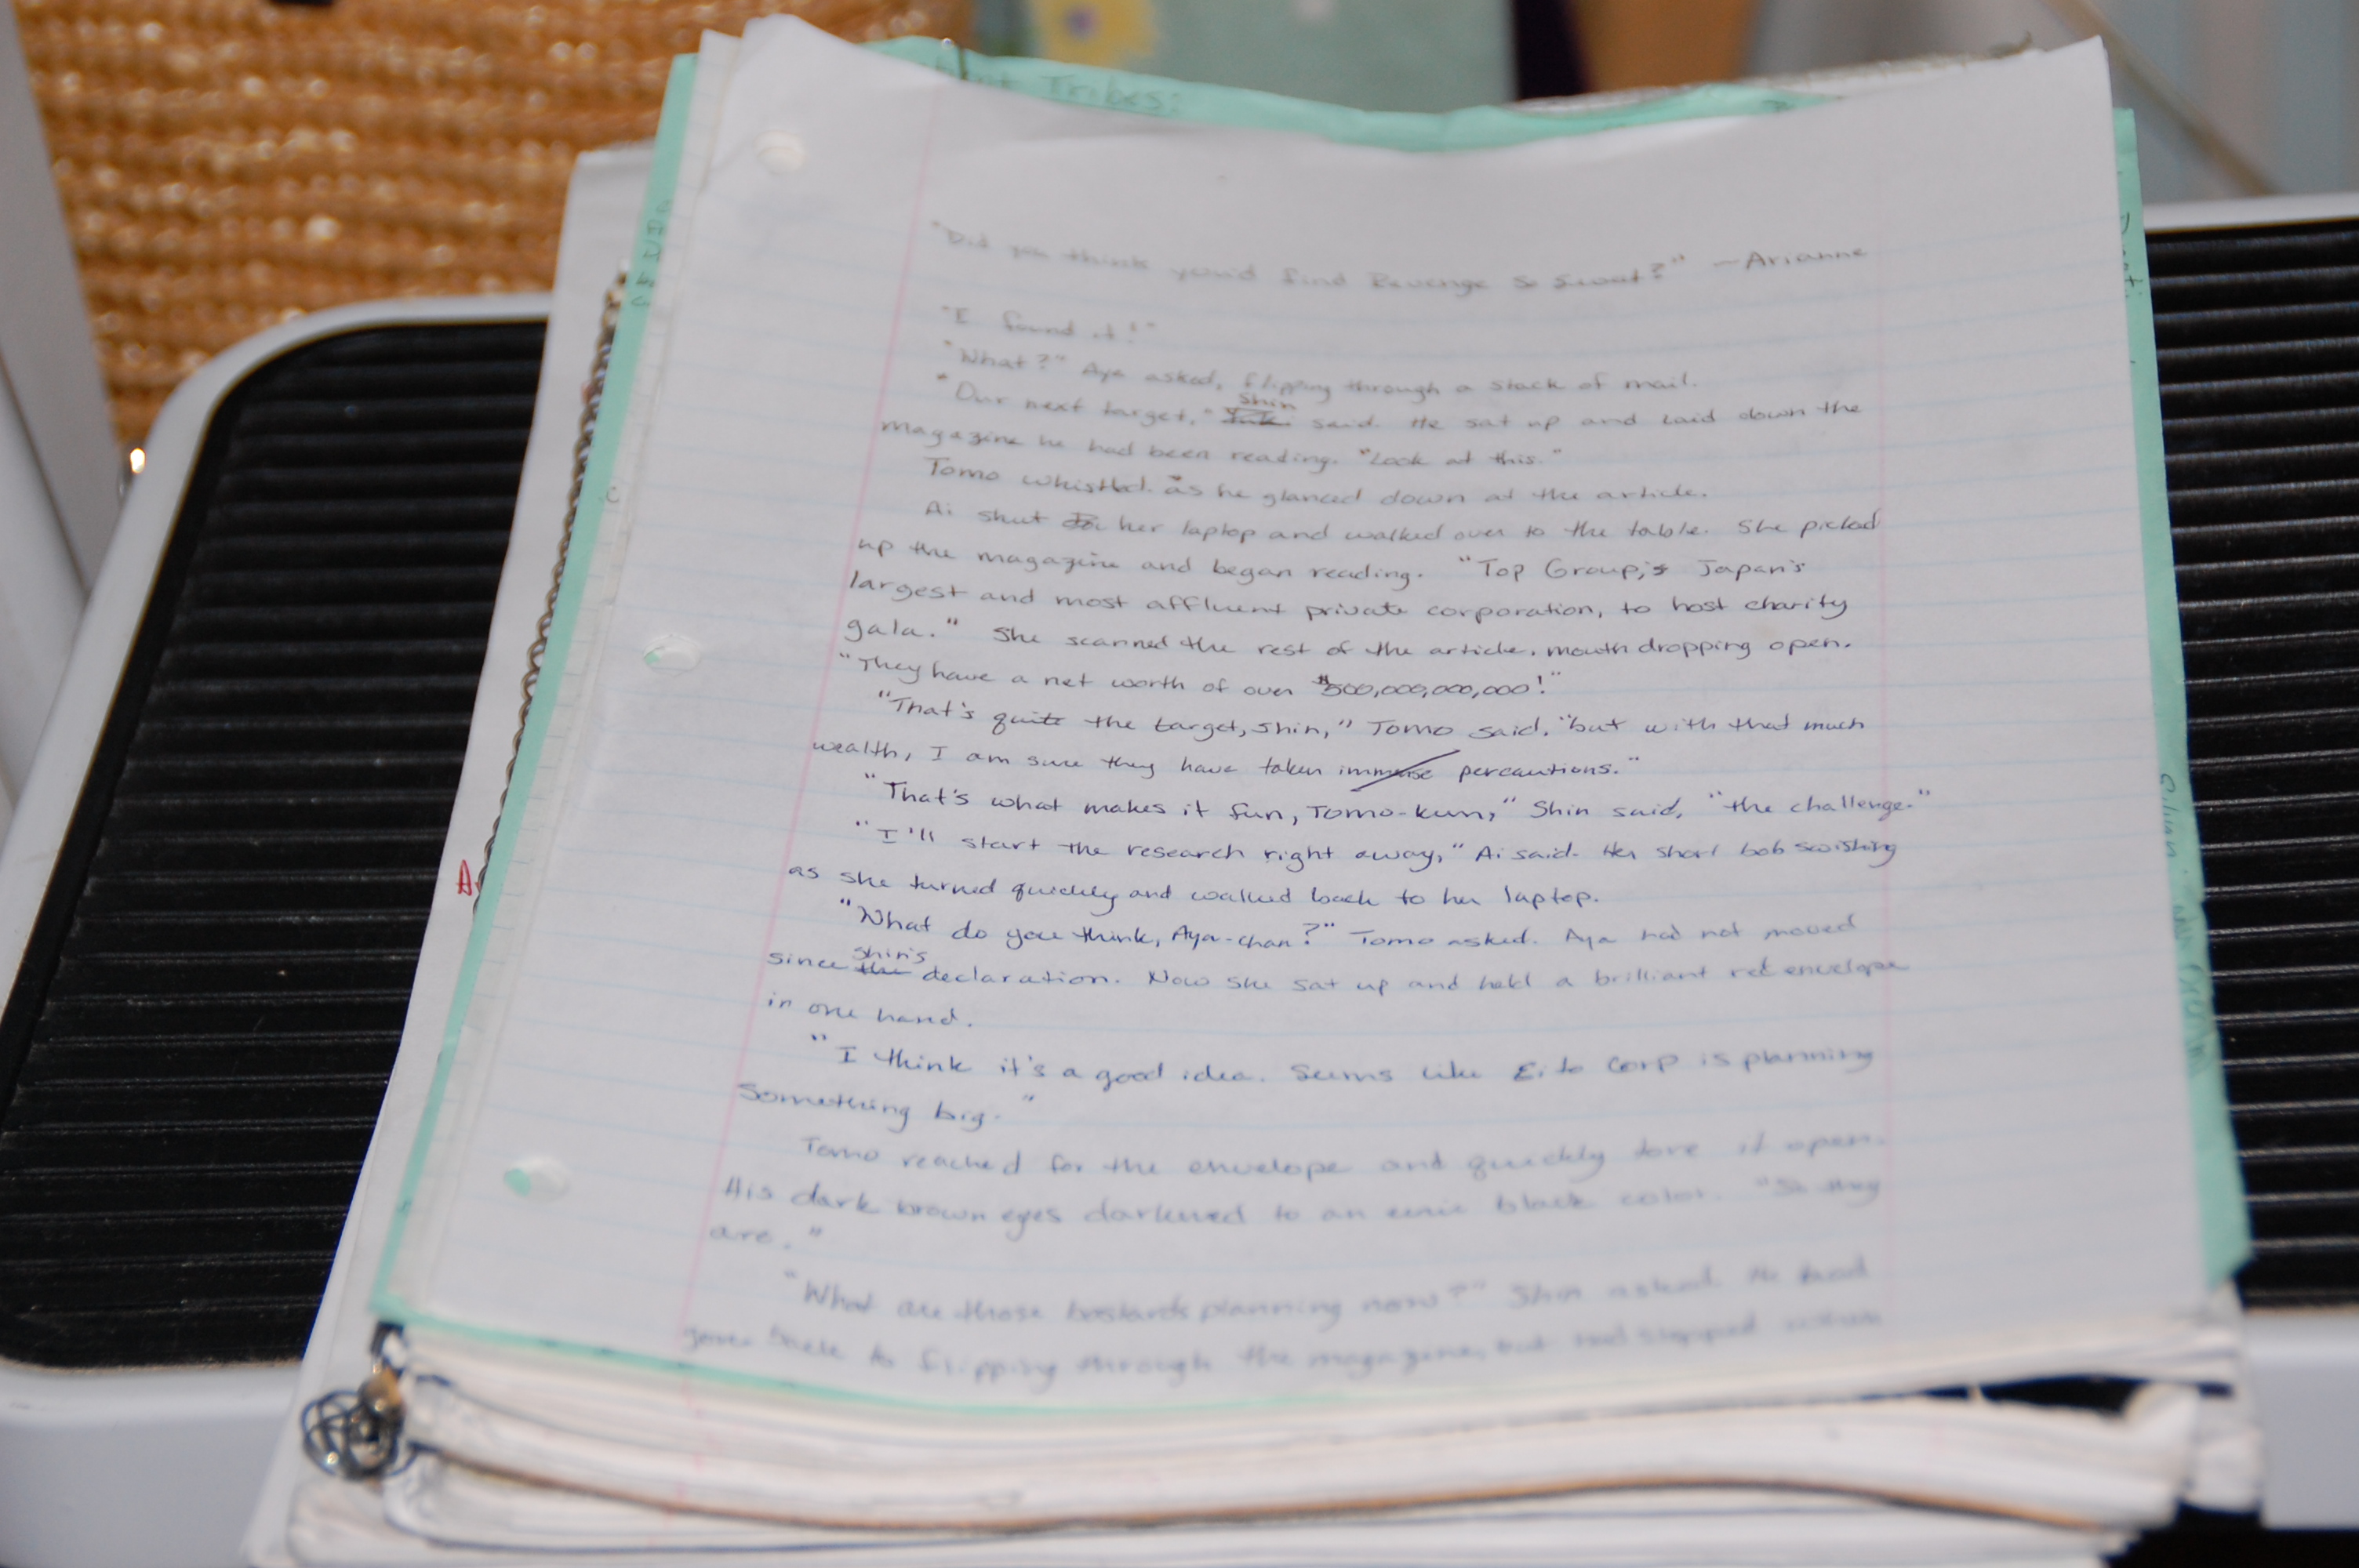 Tribes:
"Did you think you'd find Revenge so Sweet?" ~Arianne
"I found it!"
"What?" Aya asked, flipping through a stack of mail.
"Our next target," Shin said. He sat up and laid down the
magazine he had been reading. "Look at this."
Tomo whistled as he glanced down at the article.
Ai shut her laptop and walked over to the table. She picked
up the magazine and began reading. "Top Group, Japan's
largest and most affluent private corporation, to host charity
gala." She scanned the rest of the article, mouth dropping open.
"They have a net worth of over $500,000,000,000!"
"That's quite the target, Shin," Tomo said, "but with that much
wealth, I am sure they have taken immense percautions."
"That's what makes it fun, Tomo-kun," Shin said, "the challenge."
"I'll start the research right away," Ai said. Her short bob swishing
as she turned quickly and walked back to her laptop.
"What do you think, Aya-chan?" Tomo asked. Aya had not moved
since Shin's declaration. Now she sat up and held a brilliant red envelope
in one hand.
"I think it's a good idea. Seems like Eito Corp is planning
something big."
Tomo reached for the envelope and quickly tore it open.
His dark brown eyes darkened to an eerie black color. "So they
are."
"What are those bastards planning now?" Shin asked. He had
gone back to flipping through the magazine, but had stopped
A